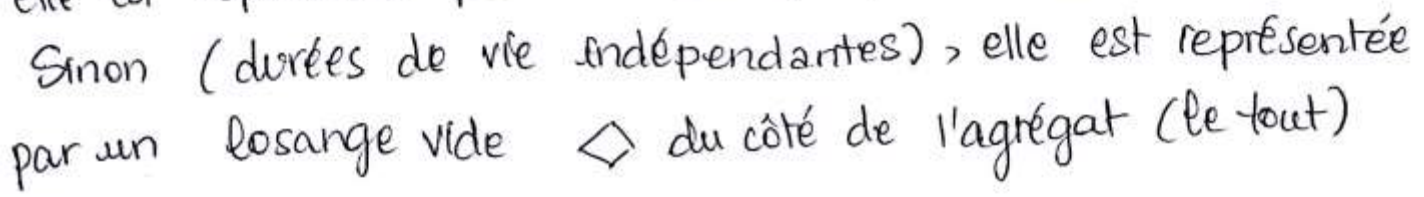 Sinon (durées de vie indépendantes), elle est représentée
par un losange vide ◇ du côté de l'agrégat (le tout)